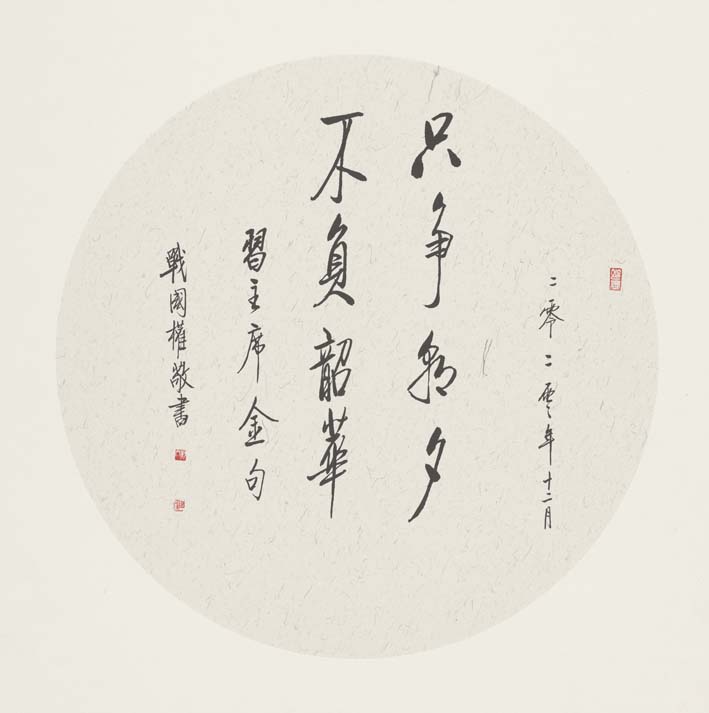 二零二零年十二月
只争朝夕
不負韶華
習主席金句
戰國權敬書